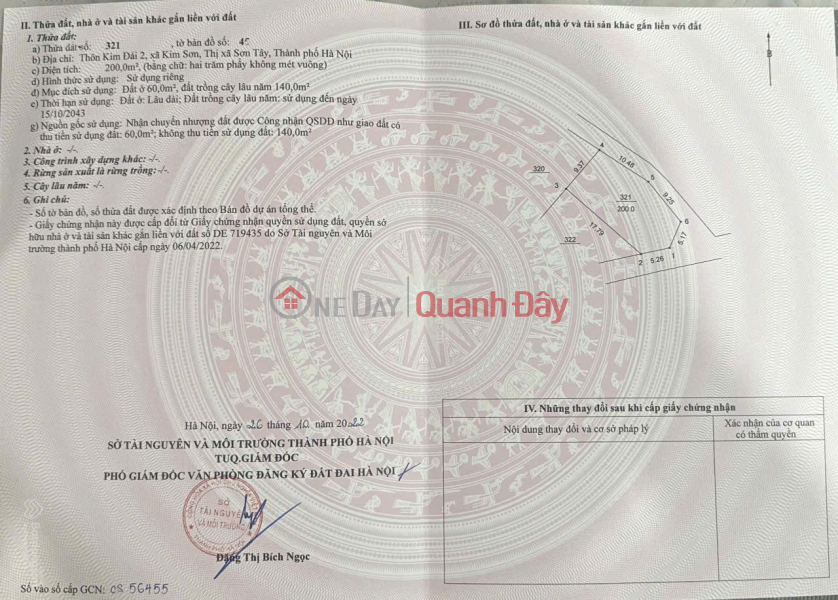 II. Thửa đất, nhà ở và tài sản khác gắn liền với đất
1. Thửa đất:
a) Thửa đất số: 321 , tờ bản đồ số: 45
b) Địa chỉ: Thôn Kim Đái 2, xã Kim Sơn, Thị xã Sơn Tây, Thành phố Hà Nội
c) Diện tích: 200,0m², (bằng chữ: hai trăm phẩy không mét vuông)
d) Hình thức sử dụng: Sử dụng riêng
đ) Mục đích sử dụng: Đất ở 60,0m², đất trồng cây lâu năm 140,0m²
e) Thời hạn sử dụng: Đất ở: Lâu dài; Đất trồng cây lâu năm: sử dụng đến ngày
15/10/2043
g) Nguồn gốc sử dụng: Nhận chuyển nhượng đất được Công nhận QSDĐ như giao đất có
thu tiền sử dụng đất: 60,0m²; không thu tiền sử dụng đất: 140,0m²
2. Nhà ở: -/-
3. Công trình xây dựng khác: -/-.
4. Rừng sản xuất là rừng trồng: -/-.
5. Cây lâu năm: -/-.
6. Ghi chú:
- Số tờ bản đồ, số thửa đất được xác định theo Bản đồ dự án tổng thể.
- Giấy chứng nhận này được cấp đổi từ Giấy chứng nhận quyền sử dụng đất, quyền sở
hữu nhà ở và tài sản khác gắn liền với đất số DE 719435 do Sở Tài nguyên và Môi
trường thành phố Hà Nội cấp ngày 06/04/2022.
Hà Nội, ngày 26 tháng 10 năm 2022
SỞ TÀI NGUYÊN VÀ MÔI TRƯỜNG THÀNH PHỐ HÀ NỘI
TUQ.GIÁM ĐỐC
PHÓ GIÁM ĐỐC VĂN PHÒNG ĐĂNG KÝ ĐẤT ĐAI HÀ NỘI
SỞ
TÀI NGUYÊN
VÀ MÔI TRƯỜNG
Đặng Thị Bích Ngọc
Số vào sổ cấp GCN: CS 56455
III. Sơ đồ thửa đất, nhà ở và tài sản khác gắn liền với đất
B
4
10.48
320
9.37
5
3
9.25
321
200.0
6
17.79
322
5.17
2
5.26
1
ONEDAY Quanh Đây
IV. Những thay đổi sau khi cấp giấy chứng nhận
Nội dung thay đổi và cơ sở pháp lý
Xác nhận của cơ quan
có thẩm quyền